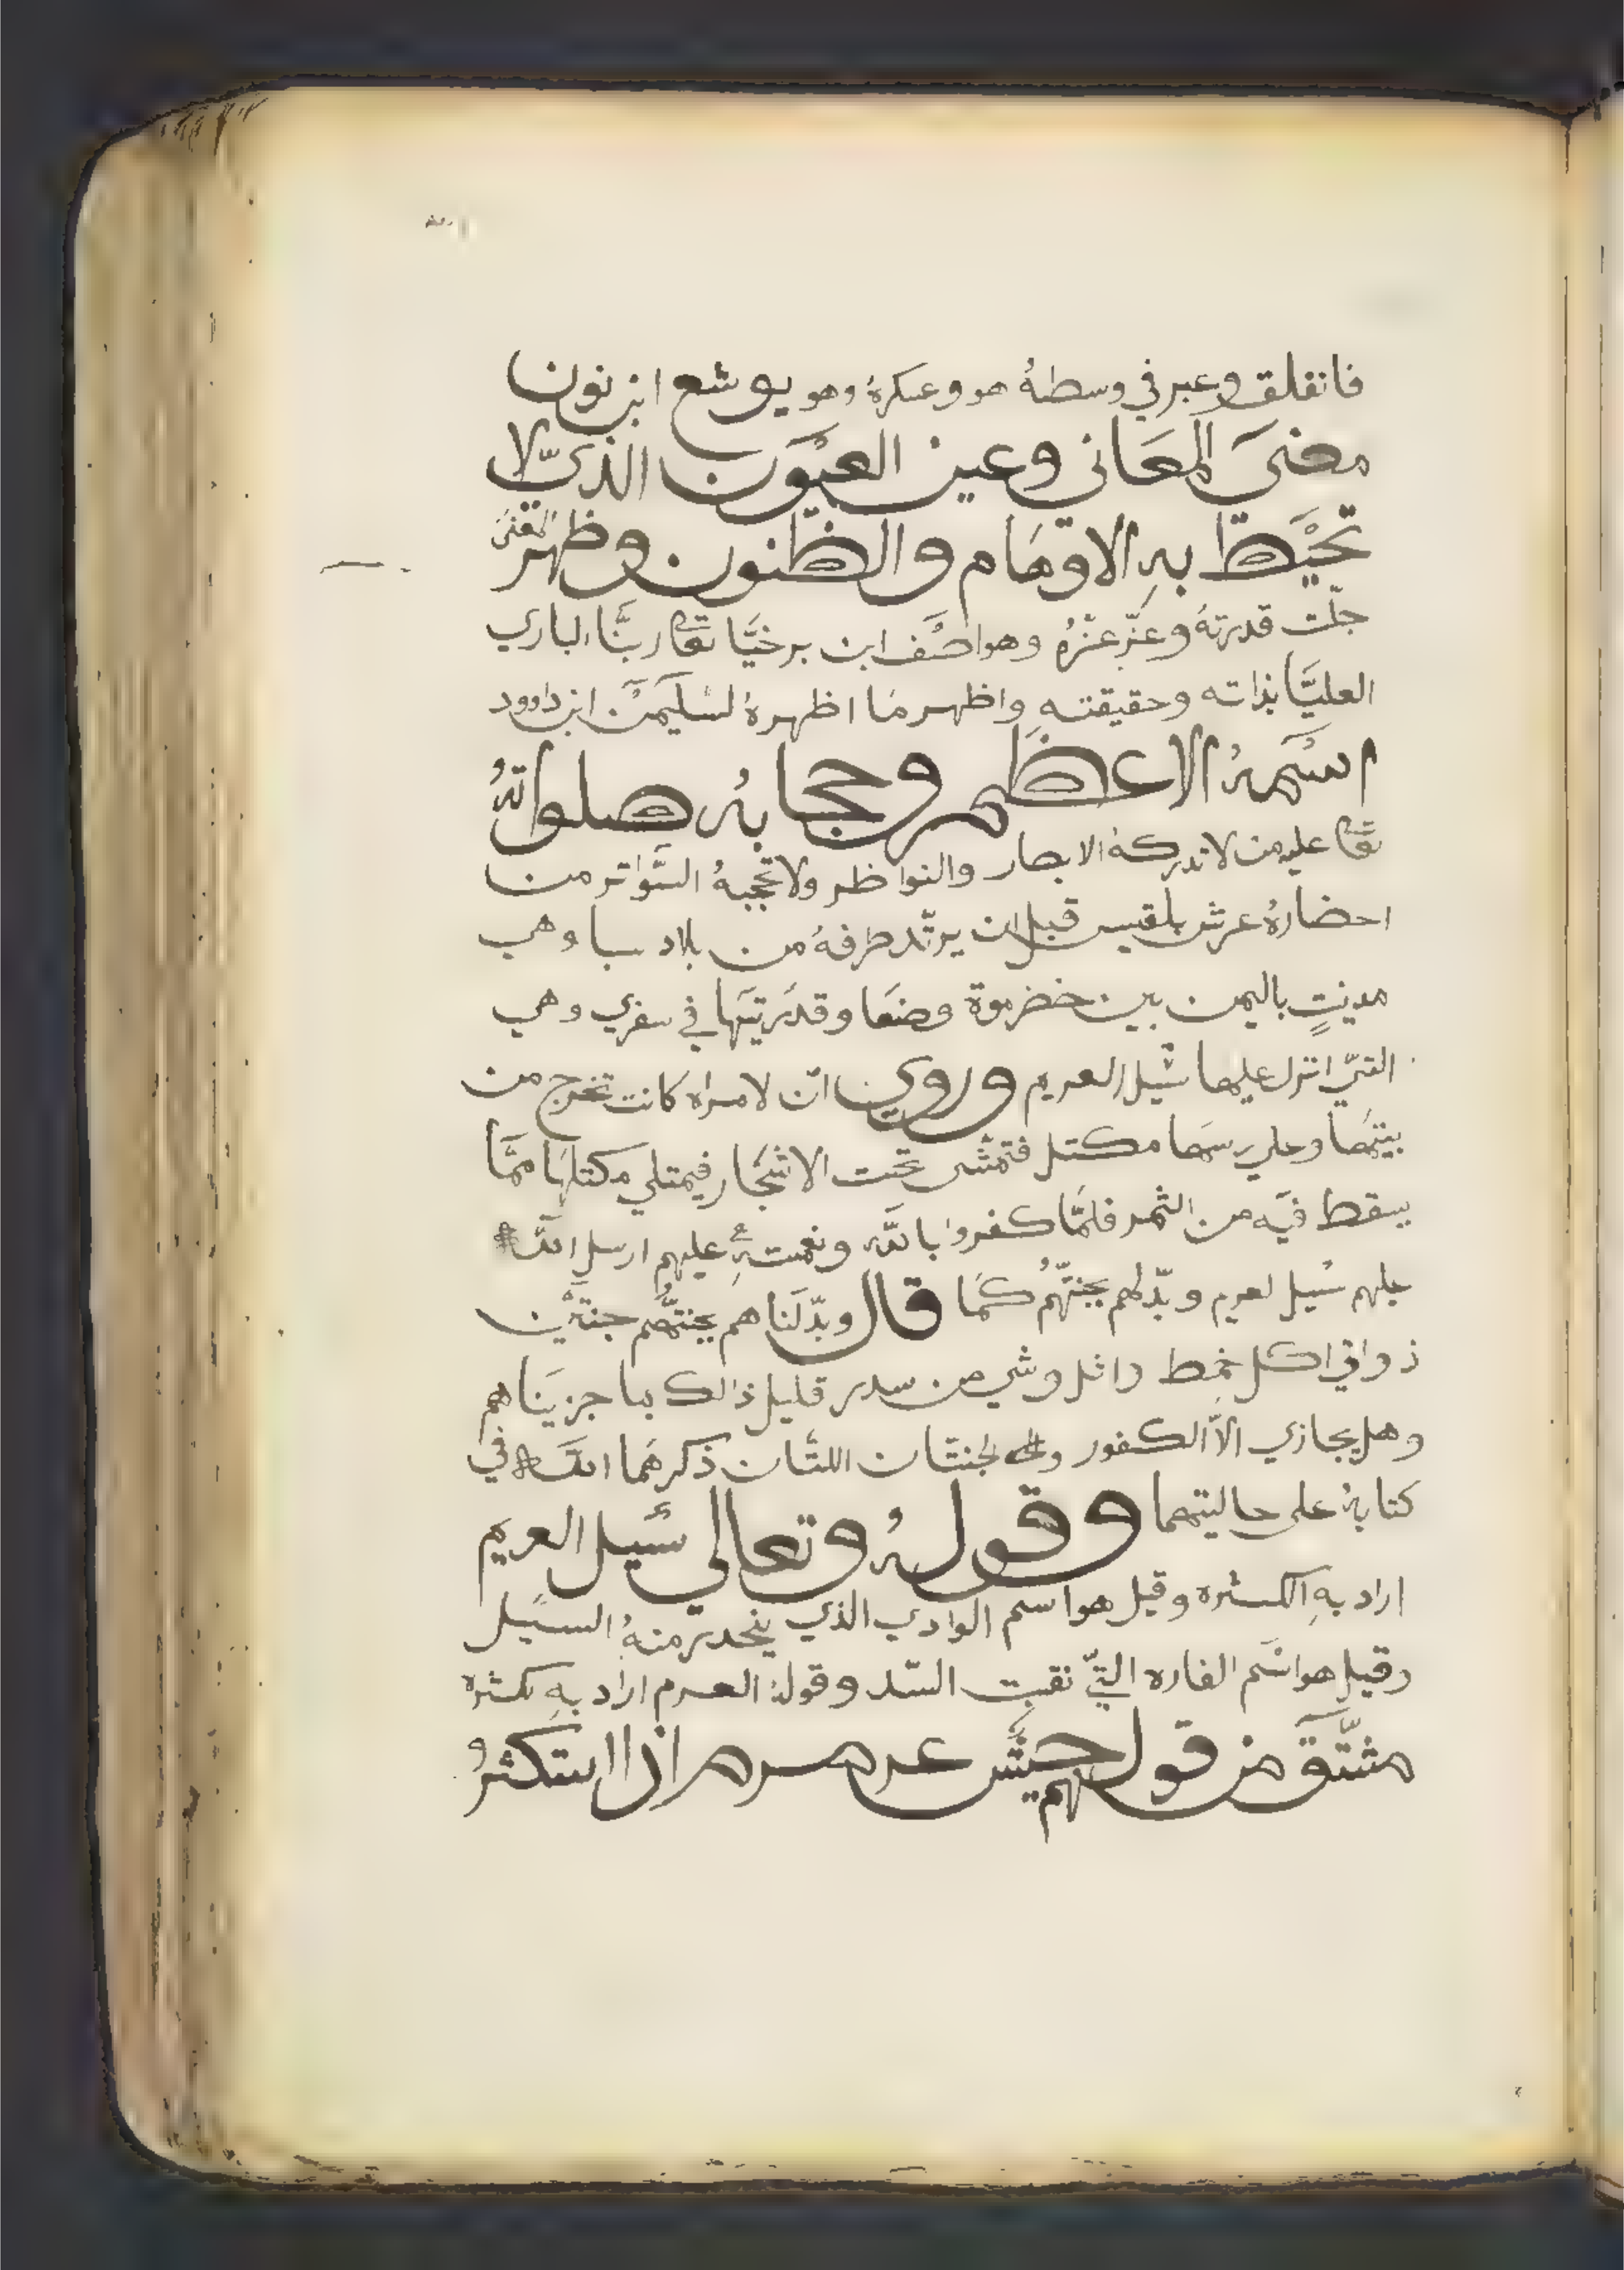 فانفلق وعبر في وسطهُ هو وعسكرهُ وهو يوشع ابن نون
معنىَ المعَاني وعين العيُون الذيّ لا
تحيَط بهِ الاوهَام والظنون وظهر المعنىَ
جلّت قدرتهُ وعزّ عزّهُ وهو اصَف ابن برخيَّا تعَالى ربنَّا الباري
العليَّا بذاته وحقيقتهِ واظهر مَا اظهرهُ لسُليَمَن ابن داوود
اسمهُ الاعظم وحجابهُ صلواتهُ
تعَالى عليه من لا تدركهُ الابصار والنواظر ولا تحجبهُ السَّواتر من
احضارهُ عرش بلقيس قبل ان يرتّد طرفهُ من بلاد سبا وهي
مدينتٍ باليمن بين خضرموة وصنعَا وقد رَتيَها في سفري وهي
التيّ انزل عليها سَيل العريم وروي انّ لامراه كانت تخرج من
بيتهَا وعلي رسهَا مكتل فتمشى تحت الاشجَار فيمتلي مكتلهَا ممَّا
يسقط فيَه من الثمر فلمَّا كفروا باللَّه ونعمتهِ عليهم ارسل اللَّه
عليهم سُيل لعريم وبدّلهم بجنتّهُم كمَا قال وبدّلَنا هم بجنتّهُم جنتيَن
ذواتي اكل خمط واثل وشي من سدر قليل ذالك بما جزيَناهم
وهل يجازي الاّ الكفور ولجنتّان اللتَّان ذكرهَما اللَّه في
كتابهُ على حاليتهما وقولهُ وتعالي سَيل العريم
اراد بهِ الكثره وقيل هو اسم الوادي الذي ينحدر منهُ السيَل
وقيل هو اسَم الفاره التيّ نقبت السّد وقولهُ العرم اراد بهِ كثره
مشتّقَ من قولهم جيشَ عرمرم اذا استكثرُو